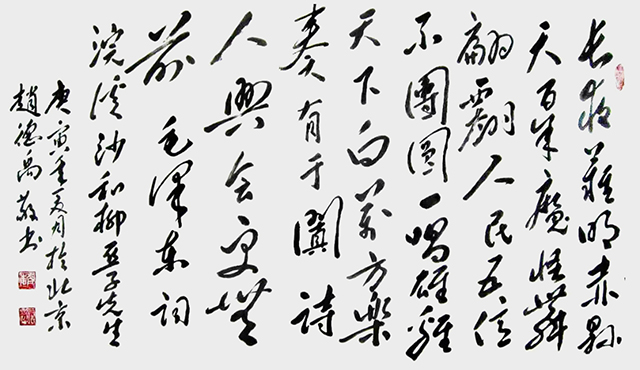 長夜難明赤縣
天百年魔怪舞
翩躚人民五億
不團圓一唱雄雞
天下白萬方樂
奏有于闐詩
人興会更無
前 毛澤東詞
浣溪沙和柳亞子先生
庚寅夏月於北京
趙德敬书